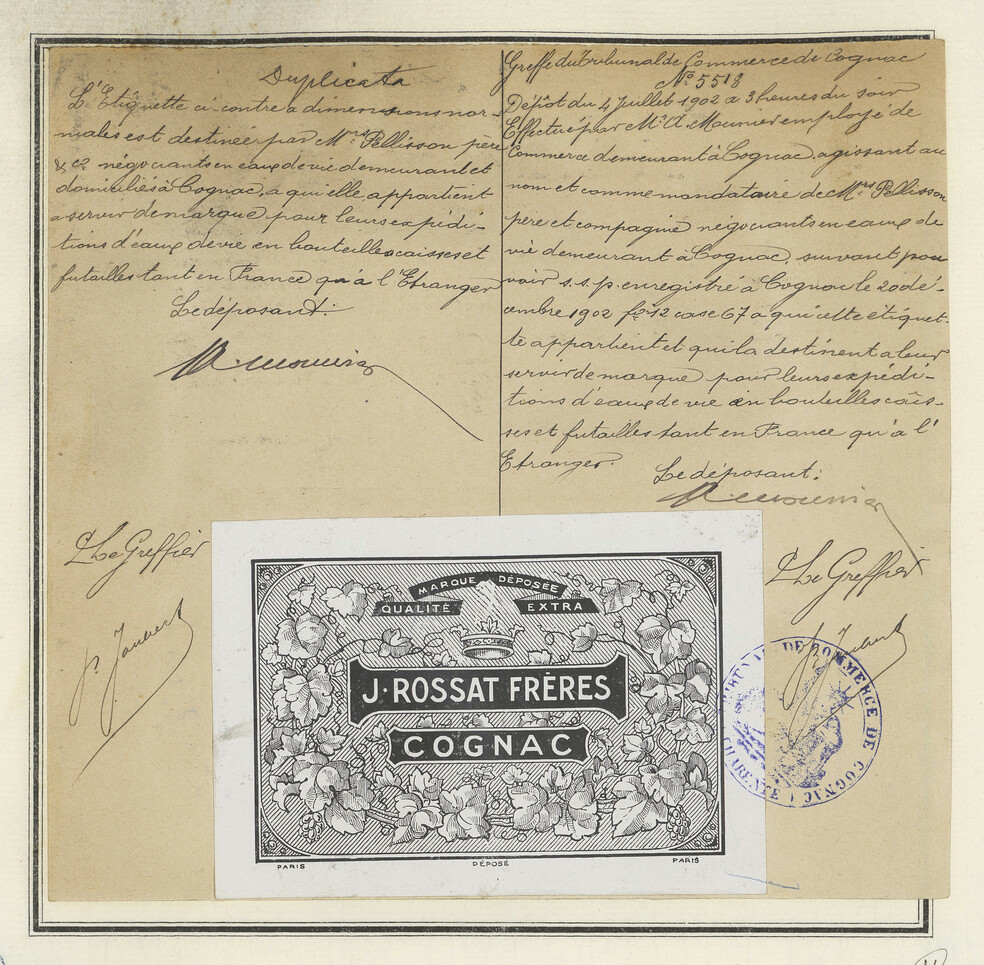 Duplicata
L'Etiquette ci contre a dimensions nor-
males est destinée par Mrs Pellisson père
& Cie négociants en eaux de vie demeurant et
domiciliés à Cognac, à qui elle appartient
a servir de marque pour leurs expédi-
tions d'eaux de vie en bouteilles caisses et
futailles tant en France qu'à l'Etranger
Le déposant:
A Mounier
P Le Greffier
P. Joubert
Greffe du Tribunal de Commerce de Cognac
No 5518
Dépôt du 4 Juillet 1902 a 3 heures du soir
Effectué par Mr A. Mounier employé de
Commerce demeurant à Cognac, agissant au
nom et comme mandataire de Mrs Pellisson
père et compagnie négociants en eaux de
vie demeurant à Cognac, suivant pou
voir s.s.p. enregistré à Cognac le 20 dé-
cembre 1902 fo 12 case 67 a qui cette étiquet-
te appartient et qui la destinent a leur
servir de marque pour leurs expédi-
tions d'eaux de vie en bouteilles cais-
ses et futailles tant en France qu'à l'
Etranger.
Le déposant:
A Mounier
P Le Greffier
MARQUE DÉPOSÉE
QUALITÉ EXTRA
J. ROSSAT FRÈRES
COGNAC
PARIS DÉPOSÉ PARIS
TRIBUNAL DE COMMERCE DE COGNAC (CHARENTE)